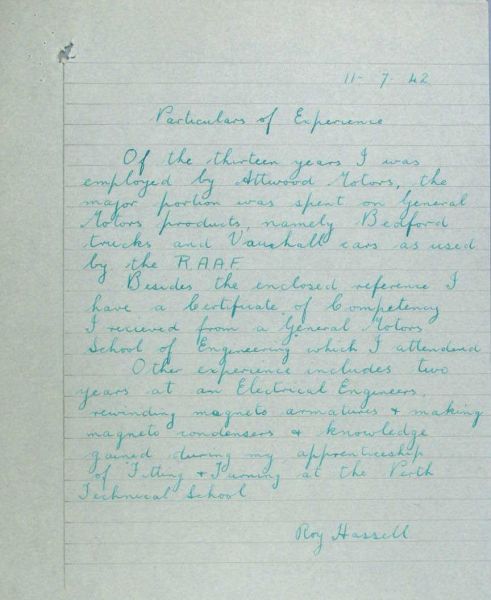 11-7-42
Particulars of Experience
Of the thirteen years I was
employed by Attwood Motors, the
major portion was spent on General
Motors products, namely Bedford
trucks and Vauxhall cars as used
by the R.A.A.F.
Besides the enclosed reference I
have a Certificate of Competency
I recieved from a General Motors
School of Engineering which I attended
Other experience includes two
years at an Electrical Engineers,
rewinding magneto armatures & making
magneto condensers & knowledge
gained during my apprenticeship
of Fitting & Turning at the Perth
Technical School
Roy Hassell